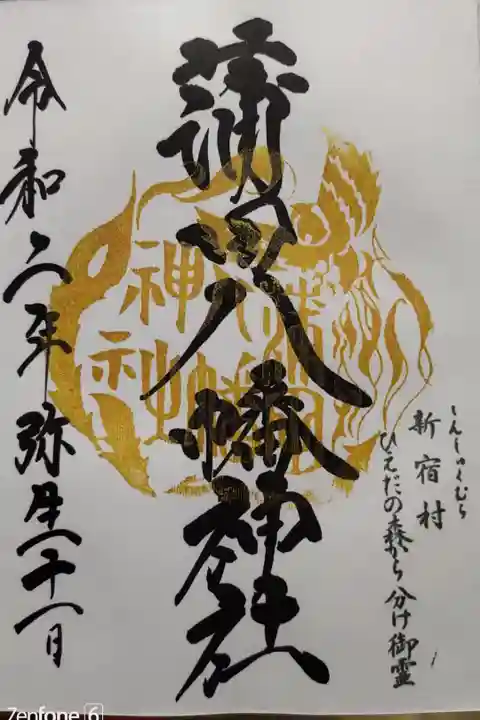 しんしゅくむら
新宿村
ひえだの森から分け御霊
蒲田八幡神社
蒲田
八幡
神社
令和六年弥生二十一日
Zenfone 6